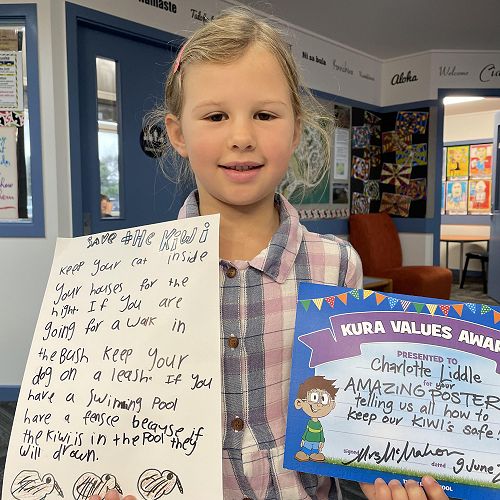 Namaste
Talofa
Ni sa bula
Aloha
Welcome
SAVE the Kiwi
Keep your cat inside
your houses for the
night. If you are
going for a walk in
the Bush keep your
dog on a leash. If you
have a swimming pool
have a fence because if
the kiwi is in the pool they
will drown.
KURA VALUES AWA
PRESENTED TO
Charlotte Liddle
for your
AMAZING POSTER
telling us all how to
keep our KIWI's safe!
signed Mrs McMahon
dated 9 June